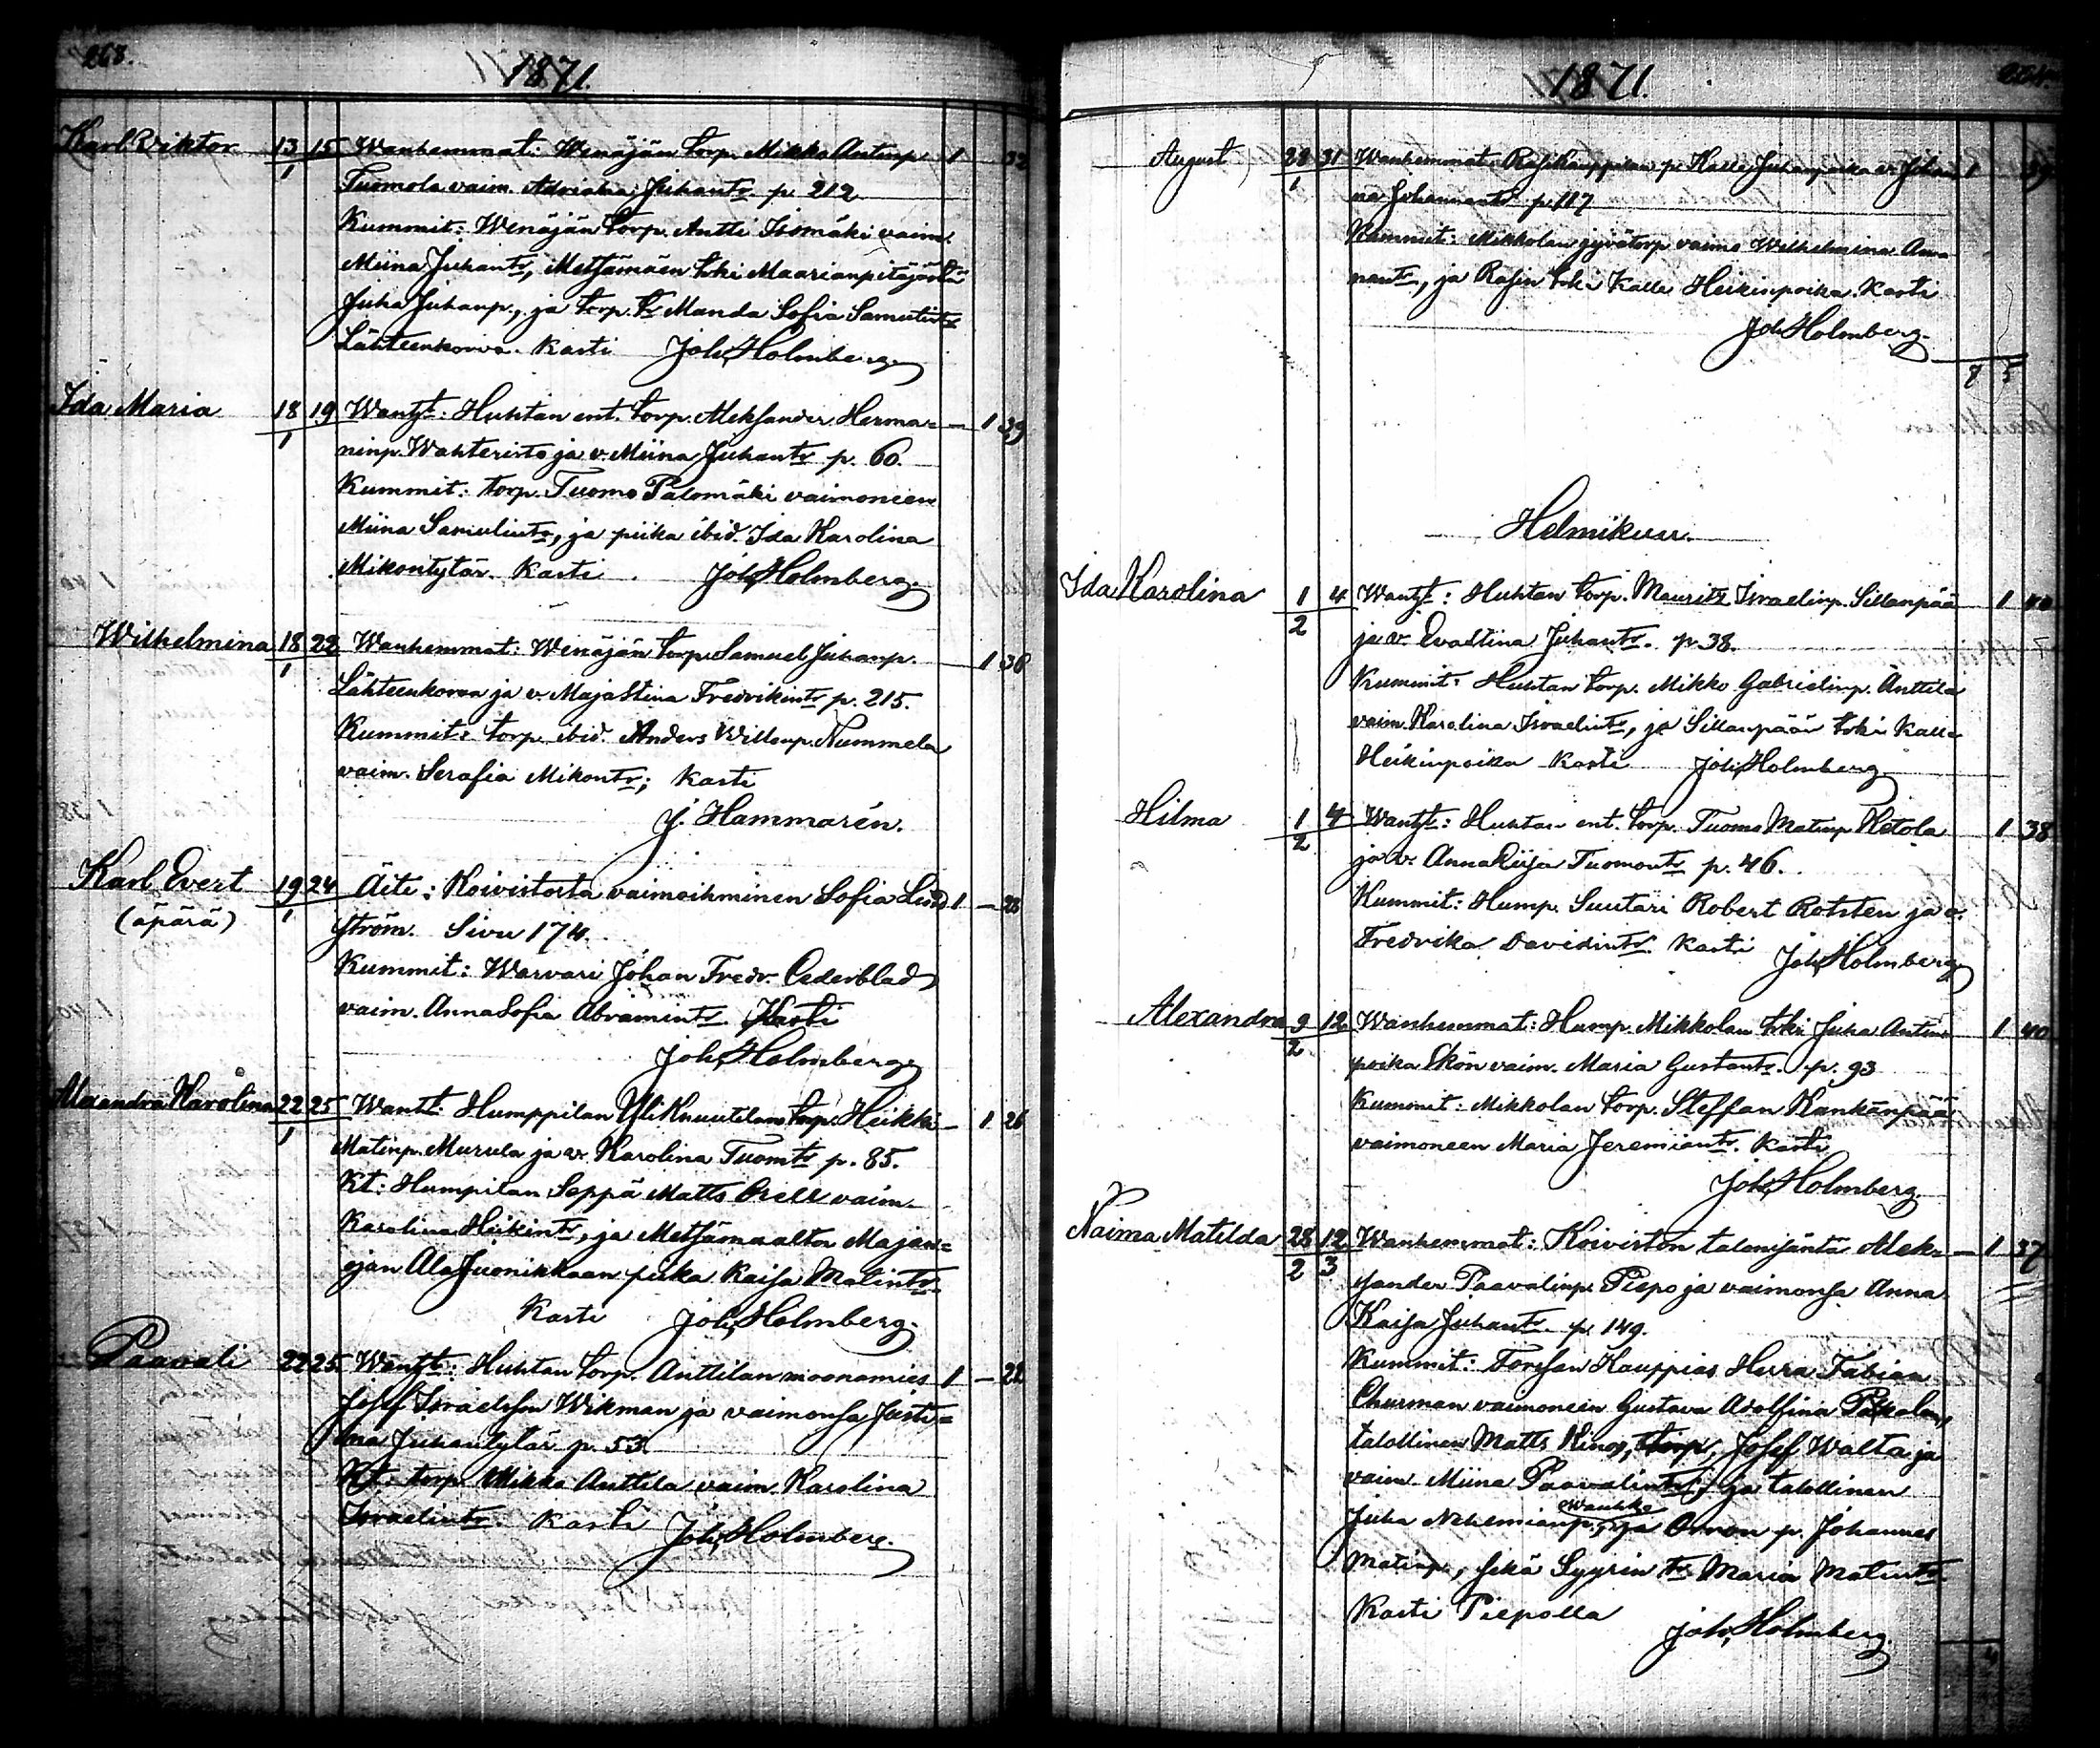 268.
1871.
Karl Viktor 13/1 15 Wanhemmat: Wenäjän torp. Mikko Antinp. 1
Tuomola vaim. Adriana Juhantr p. 212
Kummit: Wenäjän torp. Antti Isomäki vaim.
Miina Juhantr, Metsämäen trki Maarianpitäjästä
Juha Juhanp., ja torp. tr Manda Sofia Samulintr
Lähteenkorva. Kasti Joh. Holmberg.
Ida Maria 18/1 19 Wanht: Huhtan ent. torp. Aleksander Herma= — 1 39
ninp. Wahteristo ja v. Miina Juhantr p. 60.
Kummit: torp. Tuomo Palomäki vaimoneen
Miina Samulintr, ja piika ibid. Ida Karolina
Mikontytär. Kasti Joh. Holmberg.
Wilhelmina 18/1 22 Wanhemmat: Wenäjän torp. Samuel Juhanp. — 1 36
Lähteenkorva ja v. Maja Stina Fredrikintr p. 215.
Kummit: torp. ibid. Anders Willenp. Nummela
vaim. Serafia Mikontr; Kasti
J. Hammarén.
Karl Evert 19/1 24 Äiti: Koivistosta vaimoihminen Sofia Lind 1 — 28
(äpärä) ström. Sivu 174.
Kummit: Warvari Johan Fredr. Cederblad
vaim. Anna Sofia Abramintr Kasti
Joh. Holmberg.
Alexandra Karolina 22/1 25 Wanht: Humppilan Yli Knuutilan torp. Heikki — 1 26
Matinp. Murula ja v. Karolina Tuomtr p. 85.
Kt: Humpilan Seppä Matts Orell vaim.
Karolina Heikintr, ja Metsämaalta Majan=
ojan Ala Juonikkaan piika Kaisa Matintr.
Kasti Joh. Holmberg.
Paavali 22 25 Wanht: Huhtan torp. Anttilan muonamies 1 — 22
Josef Israelsson Wikman ja vaimonsa Justi=
na Juhantytär p. 53.
Kt: torp. Mikko Anttila vaim. Karolina
Israelintr. Kasti Joh. Holmberg.
1871.
August 28/1 31 Wanhemmat: Kalle Juhanpoika v. Johan 1
na Johannantr p. 117
Kummit: Mikkolan jyvätorp. vaimo Wilhelmina Anna
nantr, ja Rasin trki Kalle Heikinpoika. Kasti
Joh. Holmberg.
7 5
Helmikuu.
Ida Karolina 1/2 4 Wanht: Huhtan torp. Mauritz Israelinp. Sillanpää 1 40
ja v. Evastina Juhantr. p. 38.
Kummit: Huhtan torp. Mikko Gabrielinp. Anttila
vaim. Karolina Israelintr, ja Sillanpään trki Kalle
Heikinpoika Kasti Joh. Holmberg
Hilma 1/2 4 Wanht: Huhtan ent. torp. Tuomo Matinp. Ketola 1 38
ja v. Anna Liisa Tuomontr p. 46.
Kummit: Hump. Suutari Robert Rotsten ja v.
Fredrika Davidintr. Kasti Joh. Holmberg
Alexandra 9/2 12 Wanhemmat: Hump. Mikkolan trki Juha Antin= 1 40
poika Skön vaim. Maria Gustantr. p. 93
Kummit: Mikkolan torp. Steffan Kankänpää
vaimoneen Maria Jeremiantr. Kasti
Joh. Holmberg.
Naima Matilda 28/2 12/3 Wanhemmat: Koiviston talonisäntä Alek= — 1 37
sander Paavalinp. Piepo ja vaimonsa Anna
Kaisa Juhantr p. 149.
Kummit: Forssan Kauppias Herra Fabian
Churman vaimonein Gustava Adolfina
talollinen Matts torp. Josef Walta ja
vaim. Miina Paavalintr, ja talollinen
Juha Nehemianp. ja p. Johannes
Matinp., sekä Syyrin tr Maria Matintr.
Kasti Piepolla Joh. Holmberg.
4